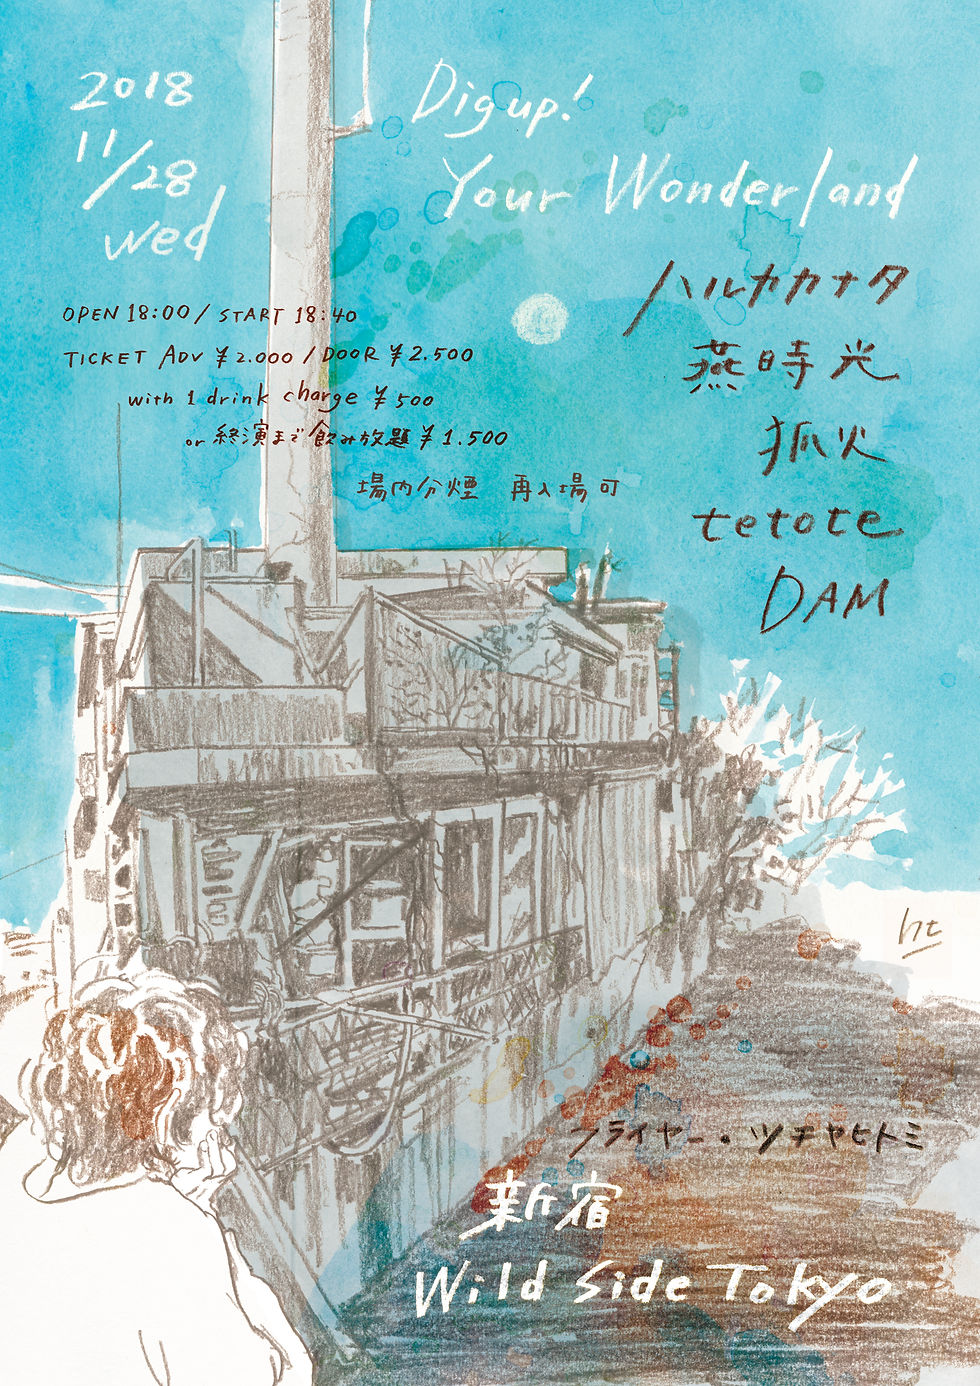 2018
11/28
wed
Dig up!
Your Wonderland
OPEN 18:00 / START 18:40
TICKET ADV ¥2.000 / DOOR ¥2.500
with 1 drink charge ¥500
or 終演まで飲み放題 ¥1.500
場内分煙 再入場可
ハルカカナタ
燕時光
狐火
tetote
DAM
ht
フライヤー・ツチヤヒトミ
新宿
Wild Side Tokyo